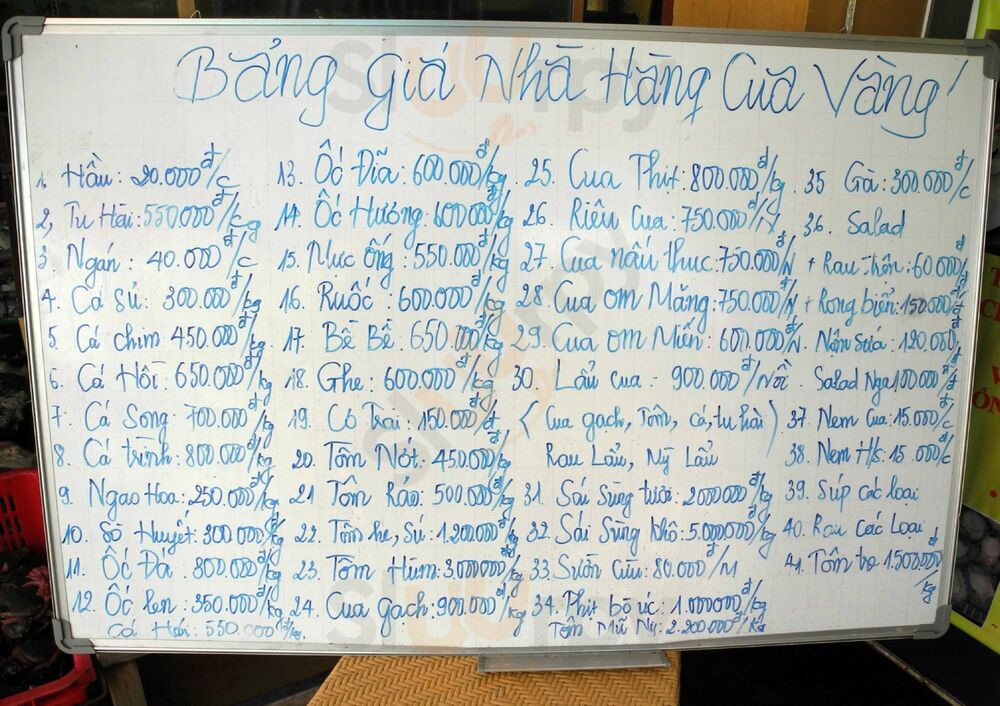 Bảng giá Nhà Hàng Cua Vàng
1. Hầu: 20.000đ/c
2, Tu Hài: 550.000đ/kg
3. Ngán: 40.000đ/c
4. Cá Sủ: 300.000đ/kg
5. Cá chim: 450.000đ/kg
6. Cá Hồi: 650.000đ/kg
7. Cá Song: 700.000đ/kg
8. Cá trình: 800.000đ/kg
9. Ngao Hoa: 250.000đ/kg
10. Sò Huyết: 300.000đ/kg
11. Ốc Đá: 800.000đ/kg
12. Ốc len: 350.000đ/kg
550.000đ/kg
13. Ốc Đĩa: 600.000đ/kg
14. Ốc Hương: 600.000đ/kg
15. Mực ống: 550.000đ/kg
16. Ruốc: 600.000đ/kg
17. Bề Bề: 650.000đ/kg
18. Ghẹ: 600.000đ/kg
19. Cò Trai: 150.000đ/đ
20. Tôm Nớt: 450.000đ/kg
21 Tôm Rảo: 500.000đ/kg
22. Tôm he, Sú: 1.200.000đ/kg
23. Tôm Hùm: 3000000đ/kg
24. Cua gạch: 900.000đ/kg
25. Cua Thịt: 800.000đ/kg
26. Riêu Cua: 750.000đ/N
27. Cua nấu thuc: 750.000đ/N
28. Cua om Măng: 750.000đ/N
29. Cua om Miến: 600.000đ/N
30. Lẩu cua: 900.000đ/Nồi
(Cua gạch, Tôm, cá, tu hài)
Rau Lẩu, Mỳ Lẩu
31. Sái Sùng tươi: 2000000đ/kg
32. Sái Sùng khô: 5.000000đ/kg
33. Sườn Cừu: 80.000đ/M
34. Thịt bò úc: 1.000000đ/kg
Tôm Mũ Ni: 2.200.000đ/kg
35 Gà: 300.000đ/c
36. Salad
+ Rau trộn: 60000đ/đ
+ Rong biển: 150.000đ/đ
Nộm Sứá: 120.000đ/đ
Salad Nga 100.000đ/đ
37. Nem Cua: 15.000đ/c
38. Nem H/s: 15.000đ/c
39. Súp các loại
40. Rau Các Loại
41. Tôm 1.500.000đ/kg